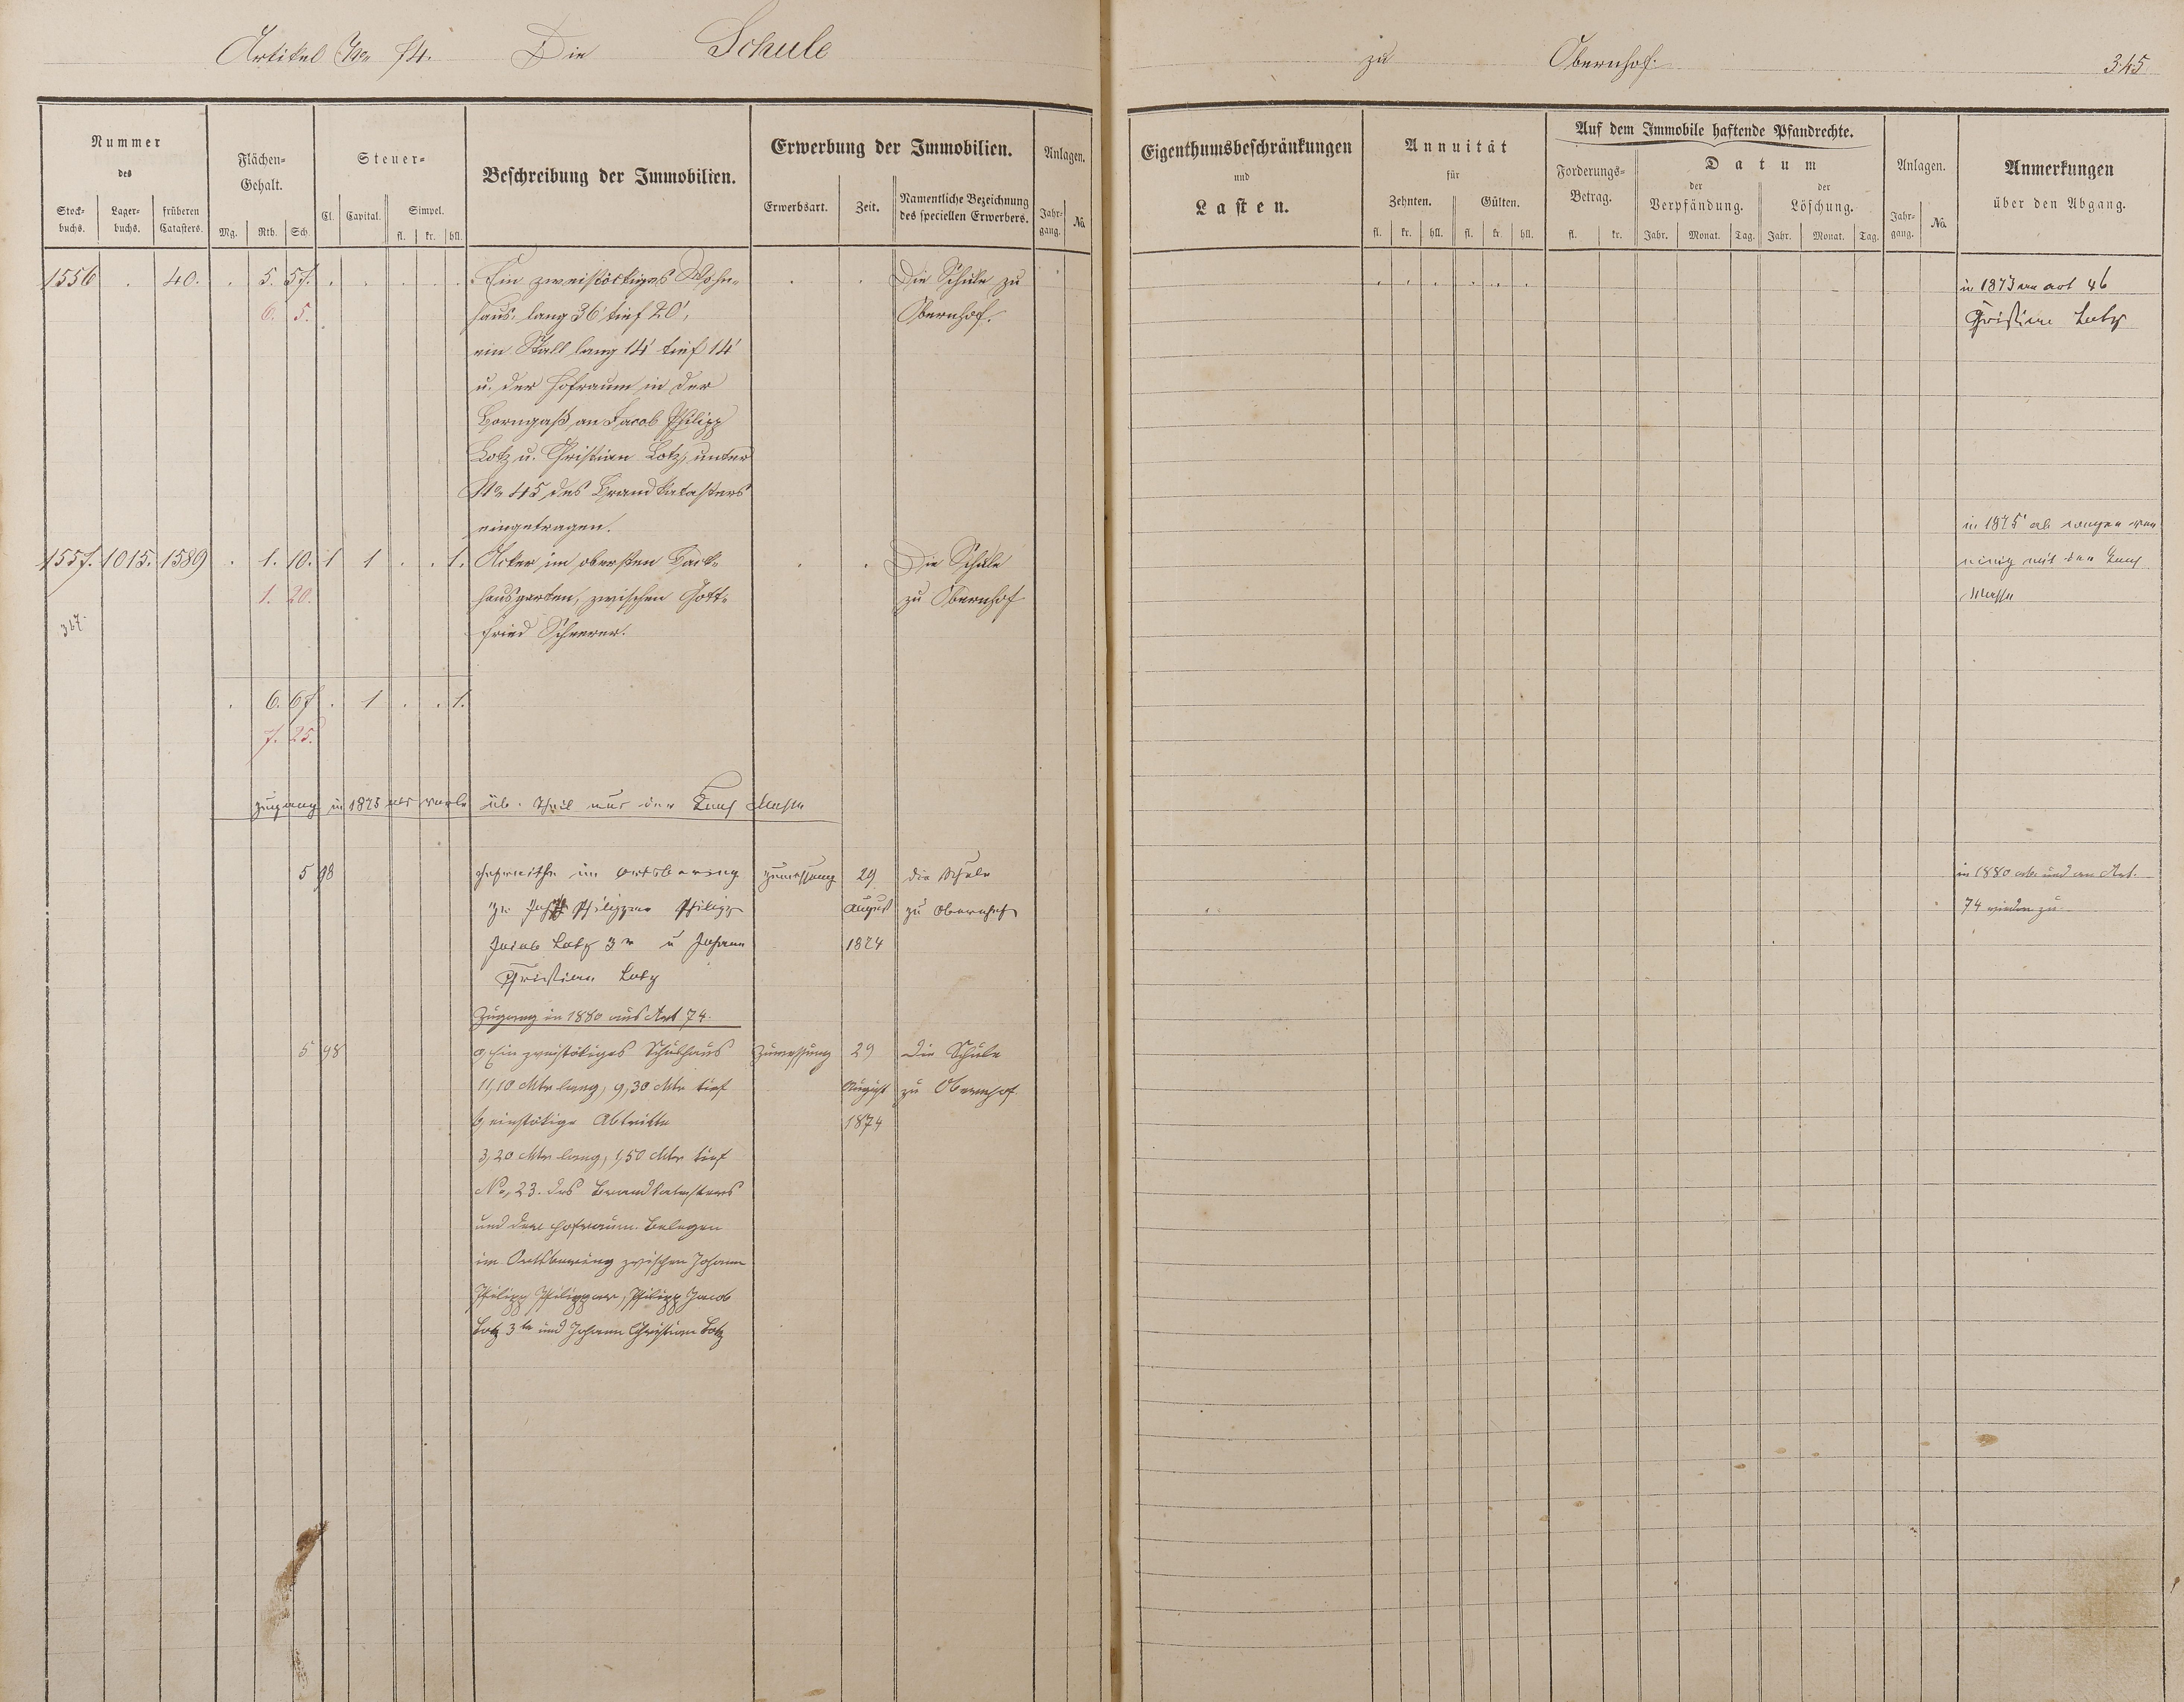 Artikel No 74. Die Schule zu Obernhof. 345
Nummer des
Stockbuchs. Lagerbuchs. früheren Catasters.
Flächen-Gehalt.
Mg. Rth. Sch.
Steuer-
Cl. Capital. Simpel.
fl. kr. hll.
Beschreibung der Immobilien.
Erwerbung der Immobilien.
Erwerbsart. Zeit. Namentliche Bezeichnung des speciellen Erwerbers.
Anlagen.
Jahrgang. No
Eigenthumsbeschränkungen
und
Lasten.
Annuität
für
Zehnten. Gülten.
fl. kr. hll. fl. kr. hll.
Auf dem Immobile haftende Pfandrechte.
Forderungs-Betrag.
fl. kr.
Datum
der Verpfändung. der Löschung.
Jahr. Monat. Tag. Jahr. Monat. Tag.
Anlagen.
Jahrgang. No
Anmerkungen
über den Abgang.
1556 . 40. . 5. 57. Ein zweistöckiges Wohn- Die Schule zu in 1873 an art 46
6. 5. haus: lang 36' tief 20', Obernhof. Christian Lotz
ein Stall lang 14' tief 14'
u. der Hofraum in der
Borngaß an Jacob Philipp
Lotz u. Christian Lotz, unter
No 45 des Brandkatasters
eingetragen. in 1875
1557. 1015. 1589 . 1. 10. 1 1 . . 1. Acker im obersten Back- Die Schule
1. 20. hausgarten, zwischen Gott- zu Obernhof Masse
347. fried Scheerer.
. 6. 67. . 1 . . 1.
7. 25.
Zugang in 1875 Theil aus der Masse
5 98 Hofreithe im Ortsbering Zumessung 29 die Schule in 1880 ab und an Art.
zw. Joh. Philippar Philipp August zu Obernhof 74 wieder zu.
Jacob Lotz 3r u Johann 1874
Christian Lotz
Zugang in 1880 aus Art 74.
5 98 a, Ein zweistökiges Schulhaus Zumessung 29 Die Schule
11,10 Mtr lang, 9,30 Mtr tief August zu Obernhof.
b, einstökige Abtritte 1874
3,20 Mtr lang, 1,50 Mtr tief
No, 23. des Brandkatasters
und der Hofraum. Belegen
im Ortsbering zwischen Johann
Philipp Philippar, Philipp Jacob
Lotz 3te und Johann Christian Lotz